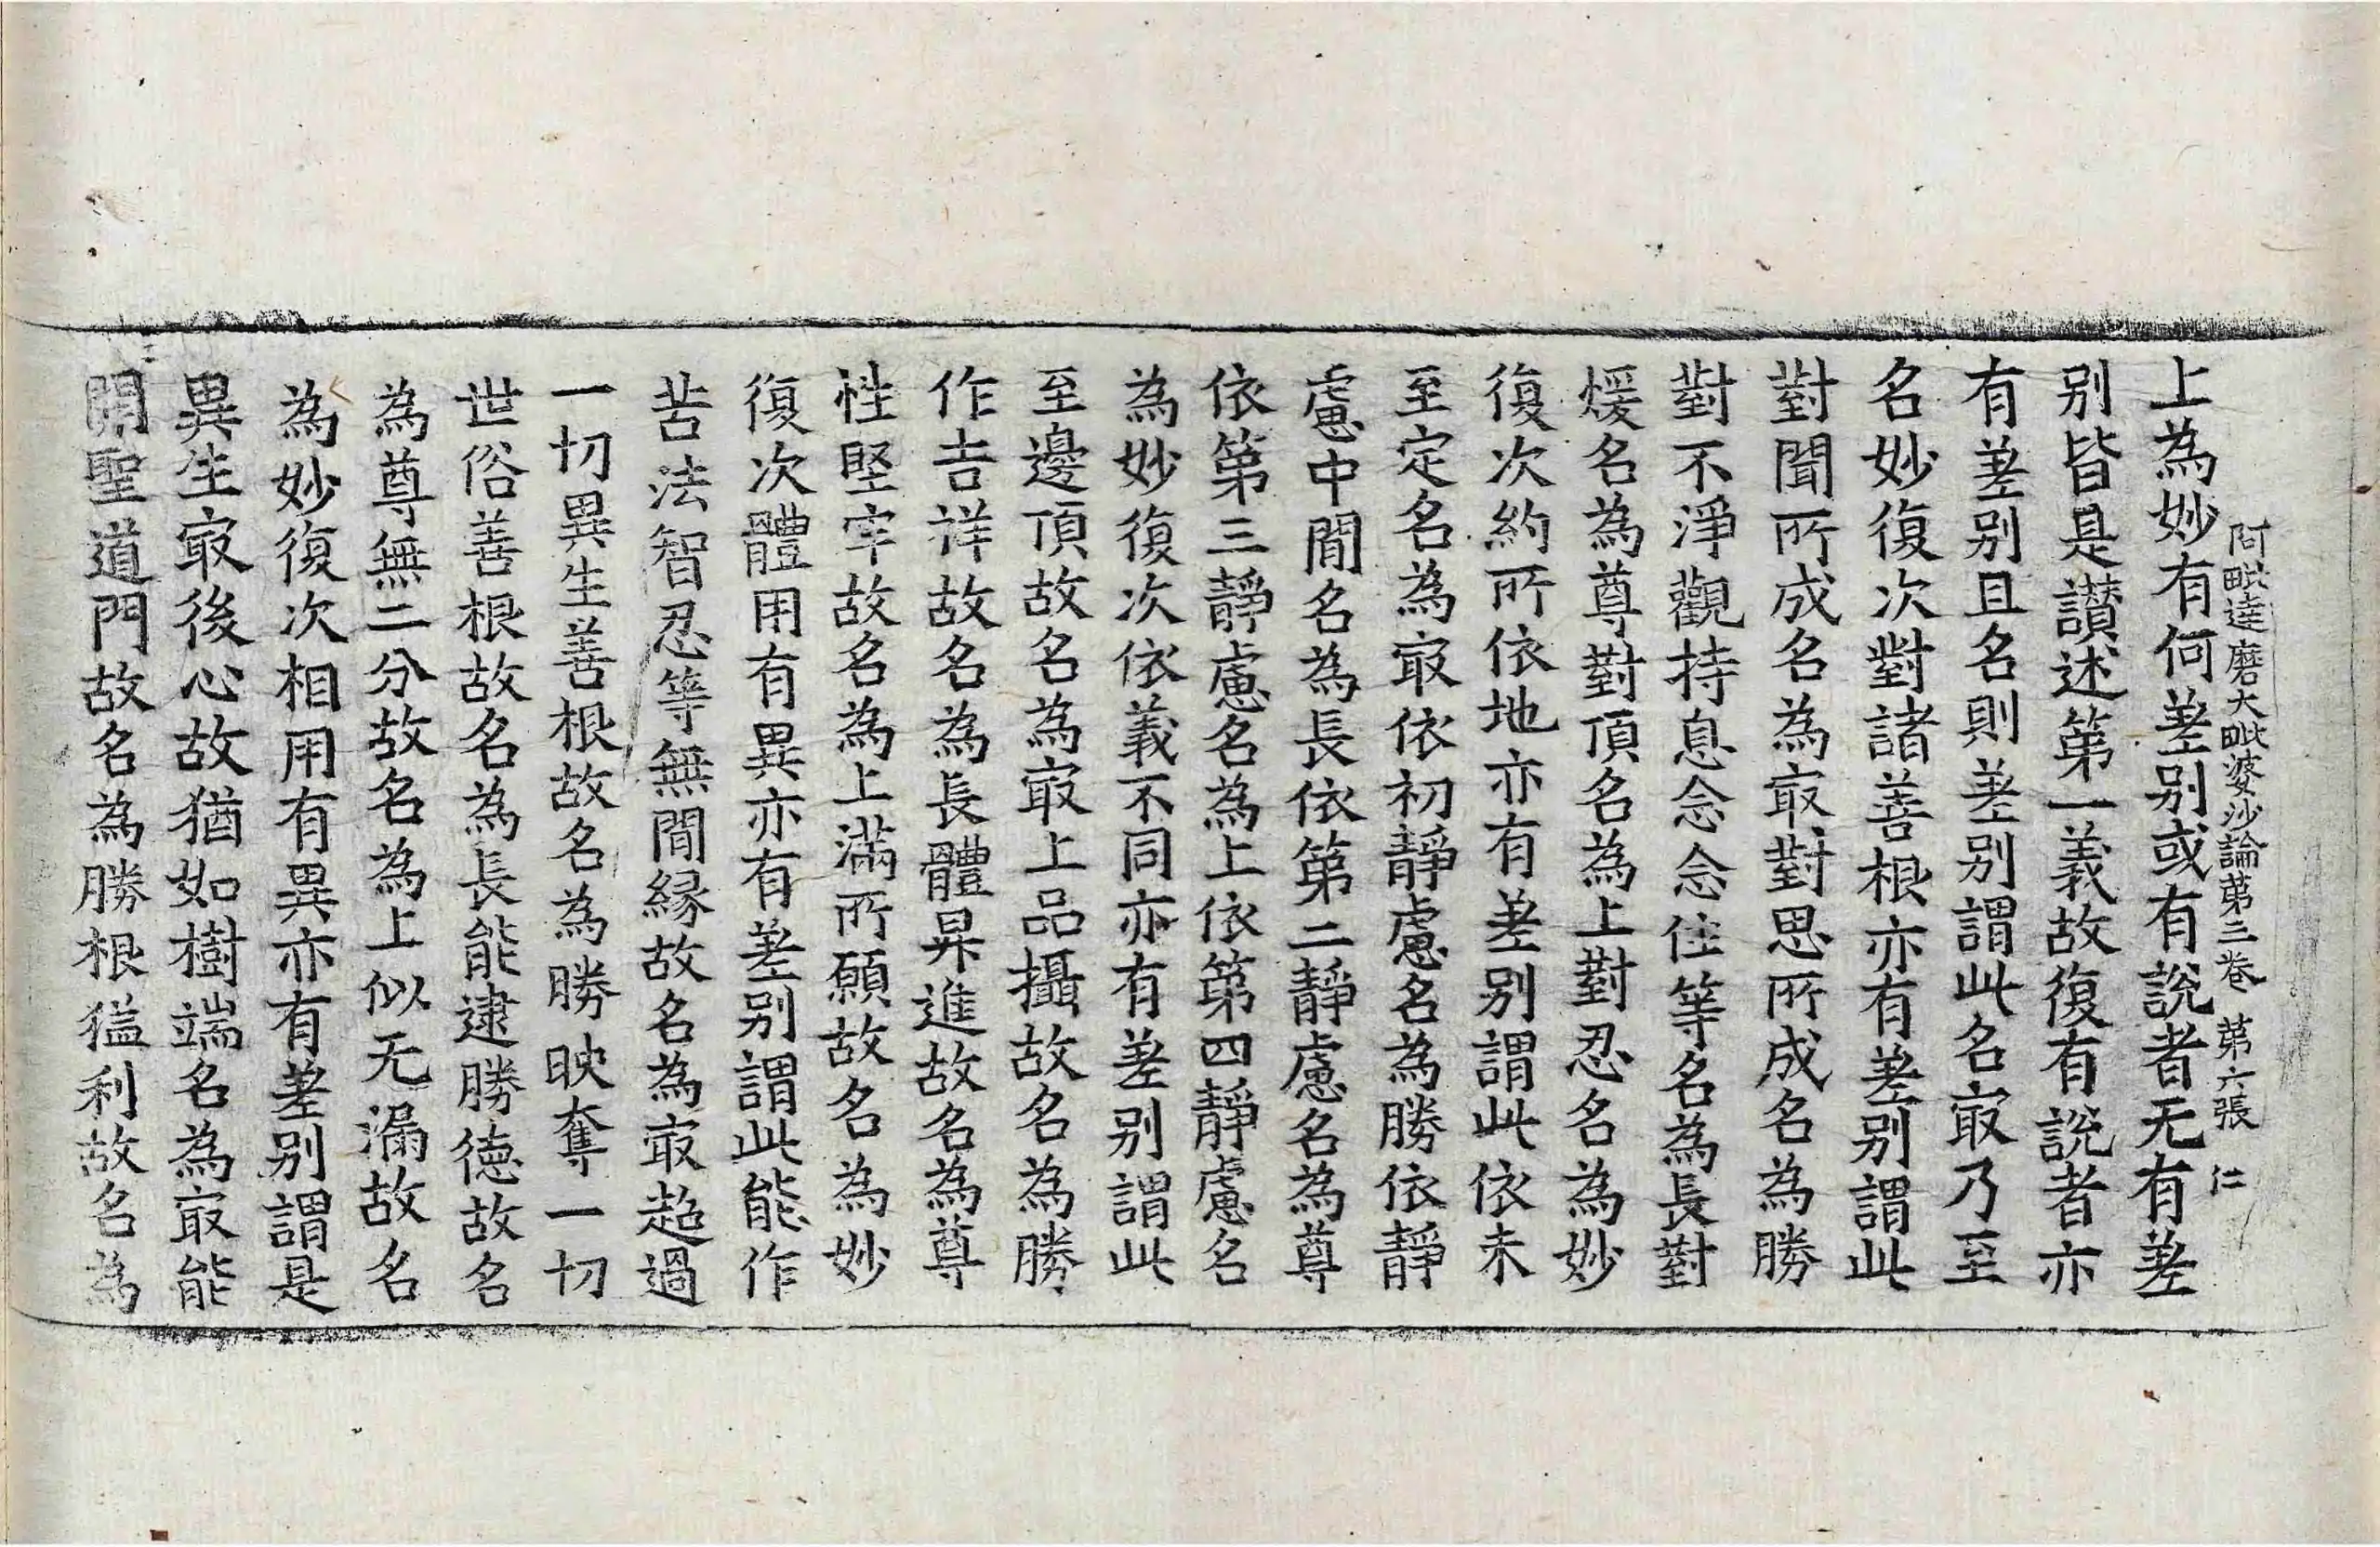 阿毗達磨大毗婆沙論第三卷　第六張　仁
上為妙有何差别或有說者无有差
别皆是讚述第一義故復有說者亦
有差别且名則差别謂此名㝡乃至
名妙復次對諸善根亦有差别謂此
對聞所成名為㝡對思所成名為勝
對不淨觀持息念念住等名為長對
煖名為尊對頂名為上對忍名為妙
復次約所依地亦有差别謂此依未
至定名為㝡依初靜慮名為勝依靜
慮中閒名為長依第二靜慮名為尊
依第三靜慮名為上依第四靜慮名
為妙復次依義不同亦有差别謂此
至邊頂故名為㝡上品攝故名為勝
作吉祥故名為長體昇進故名為尊
性堅牢故名為上滿所願故名為妙
復次體用有異亦有差别謂此能作
苦法智忍等無閒緣故名為㝡超過
一切異生善根故名為勝映奪一切
世俗善根故名為長能逮勝德故名
為尊無二分故名為上似无漏故名
為妙復次相用有異亦有差别謂是
異生㝡後心故猶如樹端名為㝡能
開聖道門故名為勝根猛利故名為